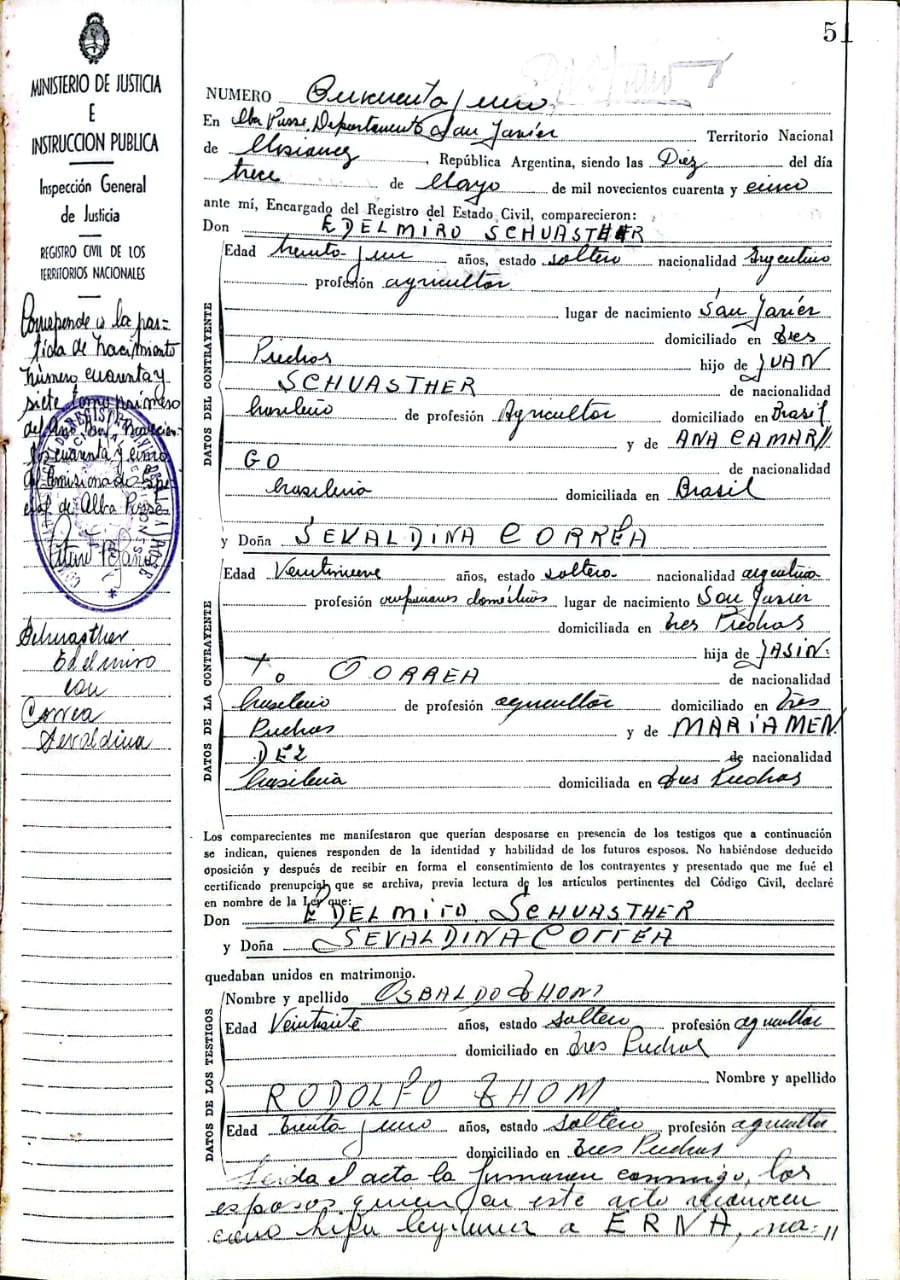 51
MINISTERIO DE JUSTICIA
E
INSTRUCCION PUBLICA
Inspección General
de Justicia
REGISTRO CIVIL DE LOS
TERRITORIOS NACIONALES
Corresponde a la par=
tida de nacimiento
número cuarenta y
siete tomo primero
del año mil
cuarenta y cinco
de Alba Posse
Schuasther
Edelmiro
con
Correa
Sevaldina
NUMERO Cincuenta y uno
En Alba Posse, Departamento San Javier Territorio Nacional
de Misiones, República Argentina, siendo las Diez del día
trece de Mayo de mil novecientos cuarenta y cinco
ante mí, Encargado del Registro del Estado Civil, comparecieron:
Don EDELMIRO SCHUASTHER
DATOS DEL CONTRAYENTE
Edad treinta y un años, estado soltero nacionalidad Argentino
profesión agricultor
lugar de nacimiento San Javier
domiciliado en tres
Piedras hijo de JUAN
SCHUASTHER de nacionalidad
brasileño de profesión Agricultor domiciliado en Brasil
y de ANA CAMAR//
GO de nacionalidad
brasileña domiciliada en Brasil
y Doña SEVALDINA CORREA
DATOS DE LA CONTRAYENTE
Edad Veintinueve años, estado soltera nacionalidad argentina
profesión ocupaciones domésticas lugar de nacimiento San Javier
domiciliada en tres Piedras
hija de JASIN=
To CORREA de nacionalidad
brasileño de profesión agricultor domiciliado en tres
Piedras y de MARIA MEN
DEZ de nacionalidad
brasileña domiciliada en tres Piedras
Los comparecientes me manifestaron que querían desposarse en presencia de los testigos que a continuación
se indican, quienes responden de la identidad y habilidad de los futuros esposos. No habiéndose deducido
oposición y después de recibir en forma el consentimiento de los contrayentes y presentado que me fué el
certificado prenupcial que se archiva, previa lectura de los artículos pertinentes del Código Civil, declaré
en nombre de la Ley que:
Don EDELMIRO SCHUASTHER
y Doña SEVALDINA CORREA
quedaban unidos en matrimonio.
DATOS DE LOS TESTIGOS
Nombre y apellido OSBALDO THOM
Edad Veintisiete años, estado soltero profesión agricultor
domiciliado en tres Piedras
Nombre y apellido
RODOLFO THOM
Edad treinta y uno años, estado soltero profesión agricultor
domiciliado en tres Piedras
Leida el acta la firmaron conmigo, los
esposos quien en este acto reconocen
como hija legitima a ERNA, na=//